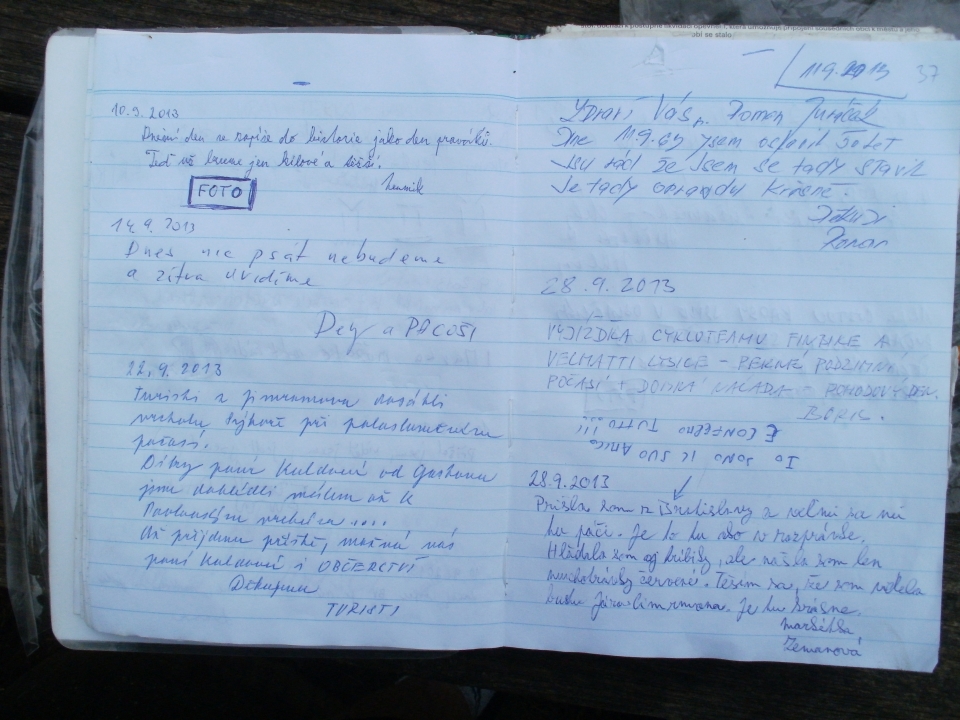 10.9.2013
Dnešní den se zapíše do historie jako den praváků.
Teď už bude jen
FOTO
14.9.2013
Dnes nic psát nebudeme
a zítra uvidíme
Dey a PACOŠI
22.9.2013
Turisti z Jimramova dosáhli
vrcholu Sýkoř při polosluneč
počasí.
Díky paní Kuldové od
jsme dohlédli málem až k
Pavlovským vrchům ....
Až přijdeme příště, možná nás
paní Kuldová i OBČERSTVÍ
Děkujeme
TURISTI
obí se stalo
11.9.2013
37
Zdraví Vás Roman Juráček
Dne 11.9.63 jsem oslavil 50 let
Jsu rád že jsem se tady stavil
Je tady opravdu krásně.
Děkuji
Roman
28.9.2013
VYJIZDKA CYKLOTEAMU
LYSICE - PĚKNÉ PODZIMNÍ
POČASÍ + DOBRÁ NÁLADA - POHODOVÝ DEN.
BORIS.
IO SONO IL SUO AMIG
E CONFERMO TUTTO !!!
28.9.2013
Prišla som z Bratislavy a veľmi sa mi
tu páči. Je to tu ako v rozprávke.
Hľadala som aj hríbiky, ale našla som len
muchotrávky červené. Teším sa, že som videla
Járu Cimrmana. Je tu krásne.
Markétka
Zemanová